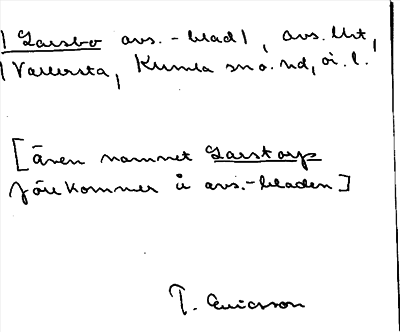 | Garsbo avs.-blad |, avs. Utt,
| Vallersta, Kumla sn o. nd, Ö. l.
[även namnet Garstorp
förekommer å avs.-bladen]
T. Ericsson